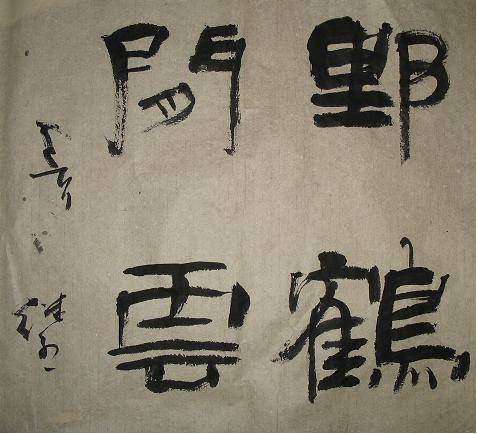 野鶴
閒雲